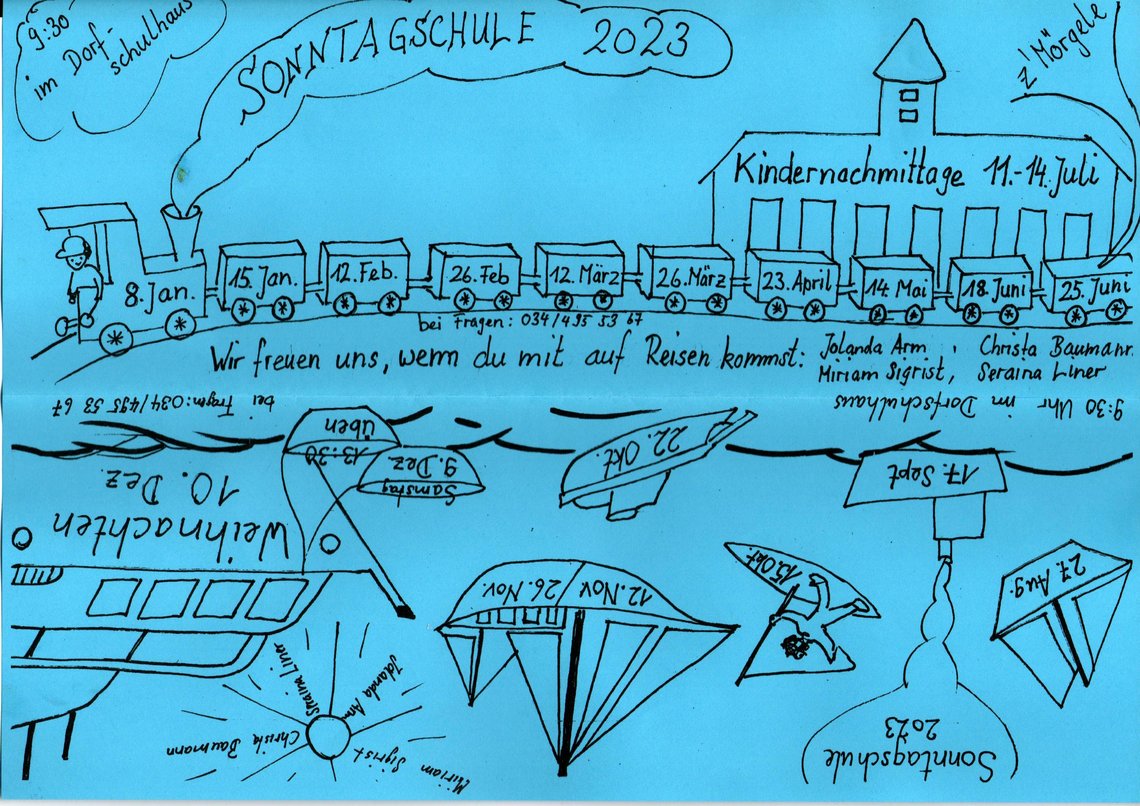 9:30
im Dorf-
schulhaus
SONNTAGSCHULE 2023
z'Mörgele
Kindernachmittage 11.-14. Juli
8. Jan.
15. Jan.
12. Feb.
26. Feb
12. März
26. März
23. April
14. Mai
18. Juni
25. Juni
bei Fragen: 034/495 53 67
Wir freuen uns, wenn du mit auf Reisen kommst:
Jolanda Arm, Christa Baumann
Miriam Sigrist, Seraina Liner
Sonntagschule
2023
27. Aug.
17. Sept
15. Okt.
22. Okt.
12. Nov.
26. Nov.
Samstag
9. Dez
13:30
üben
Weihnachten
10. Dez
Miriam Sigrist
Christa Baumann
Jolanda Arm
Seraina Liner
9:30 Uhr im Dorfschulhaus
bei Fragen: 034/495 53 67